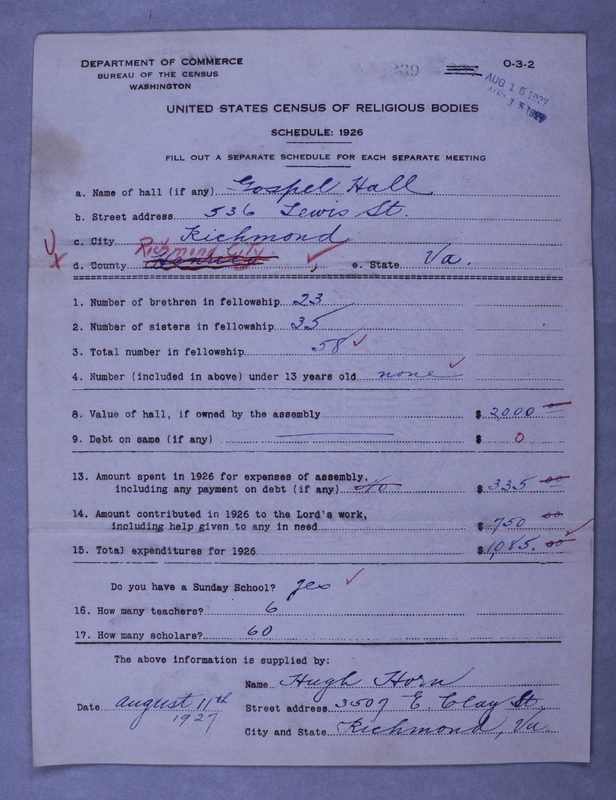 DEPARTMENT OF COMMERCE
BUREAU OF THE CENSUS
WASHINGTON
0-3-2
AUG 15 1927
UNITED STATES CENSUS OF RELIGIOUS BODIES
SCHEDULE: 1926
FILL OUT A SEPARATE SCHEDULE FOR EACH SEPARATE MEETING
a. Name of hall (if any) Gospel Hall
b. Street address 536 Lewis St.
c. City Richmond
Richmond City
d. County Henrico, e. State Va.
1. Number of brethren in fellowship 23
2. Number of sisters in fellowship 35
3. Total number in fellowship 58
4. Number (included in above) under 13 years old none
8. Value of hall, if owned by the assembly $ 2000 00
9. Debt on same (if any) $ 0
13. Amount spent in 1926 for expenses of assembly,
including any payment on debt (if any) no $ 335 00
14. Amount contributed in 1926 to the Lord's work,
including help given to any in need $ 750 00
15. Total expenditures for 1926 $ 1085. 00
Do you have a Sunday School? yes
16. How many teachers? 6
17. How many scholars? 60
The above information is supplied by:
Name Hugh Horn
Date august 11th
1927
Street address 3507 E. Clay St,
City and State Richmond, Va.